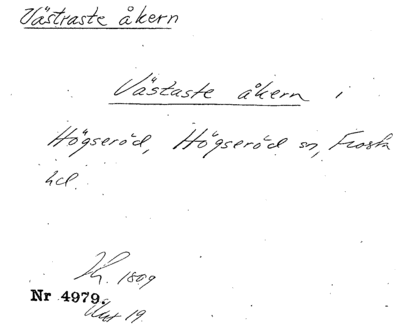 Västraste åkern
Västaste åkern i
Högseröd, Högseröd sn, Frosta
hd.
1809
Nr 4979.
19